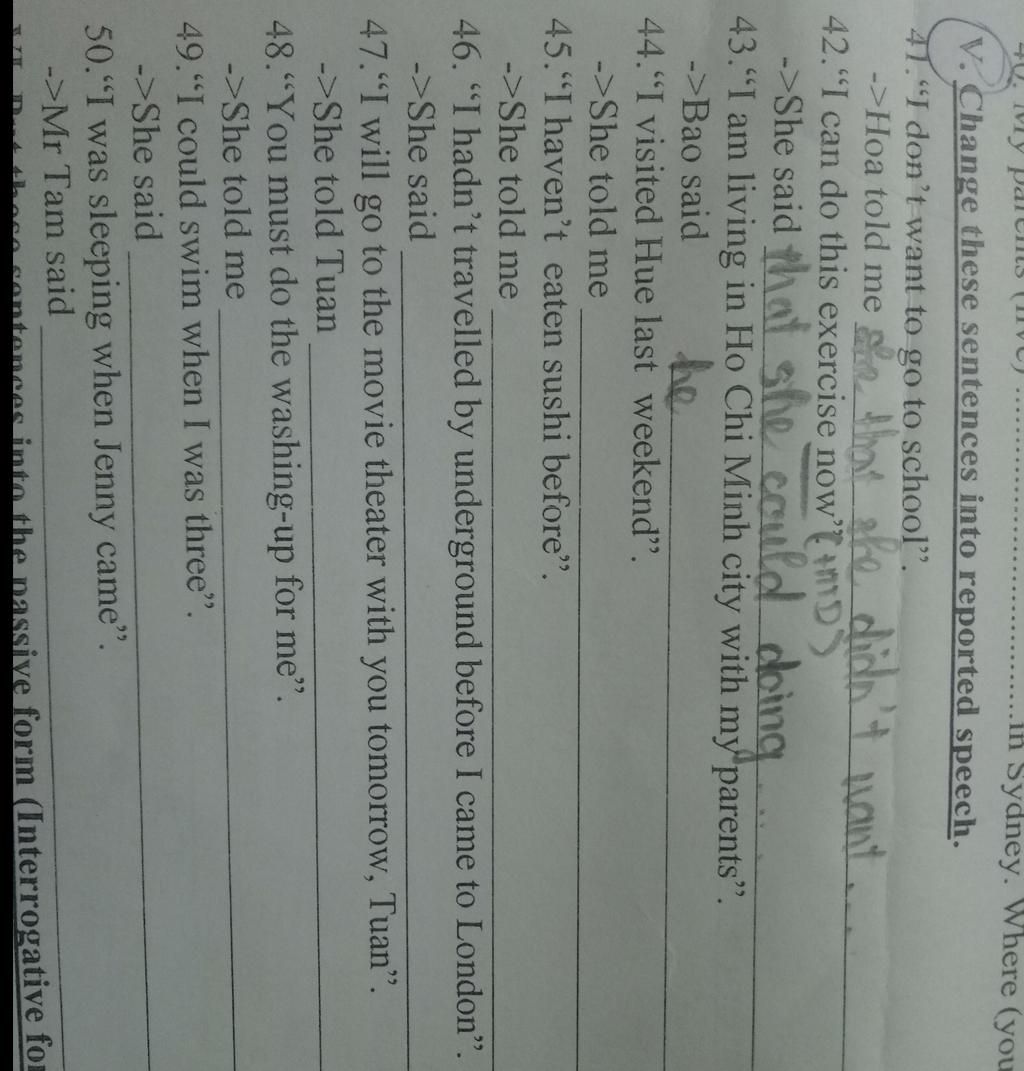 40. My parents (live) ..............................in Sydney. Where (you
V. Change these sentences into reported speech.
41."I don't want to go to school".
->Hoa told me she that she didn't want ....
42."I can do this exercise now".
->She said that she could doing ....
43."I am living in Ho Chi Minh city with my parents".
->Bao said he
44."I visited Hue last weekend".
->She told me
45."I haven't eaten sushi before".
->She told me
46. "I hadn't travelled by underground before I came to London".
->She said
47."I will go to the movie theater with you tomorrow, Tuan".
->She told Tuan
48."You must do the washing-up for me".
->She told me
49."I could swim when I was three".
->She said
50."I was sleeping when Jenny came".
->Mr Tam said
VI. Put these sentences into the passive form (Interrogative for